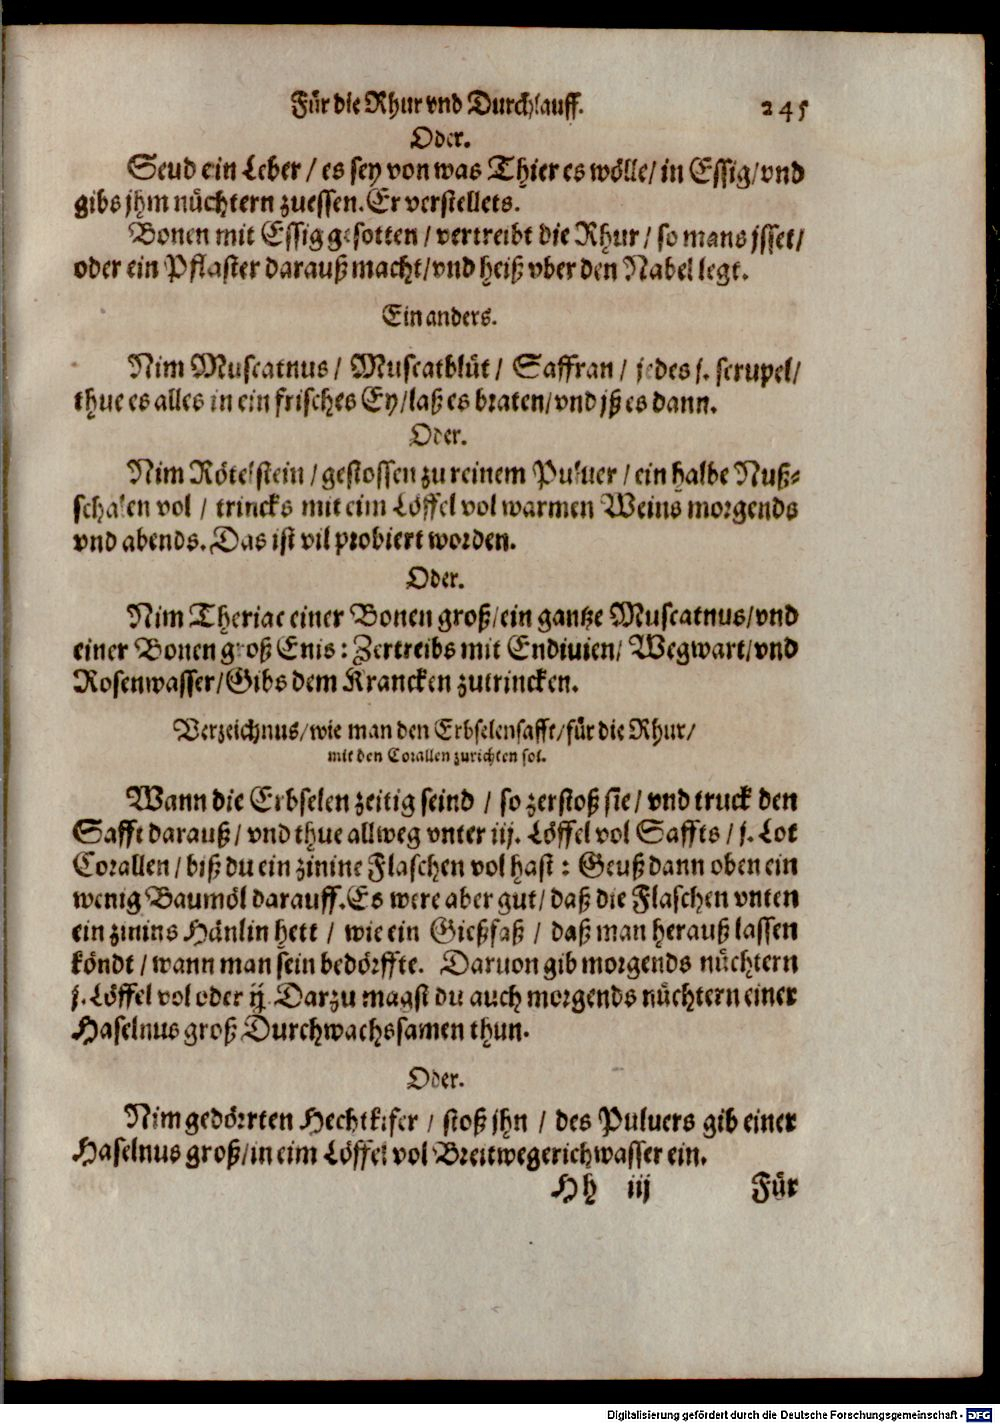 Für die Rhur vnd Durchlauff. 245
Oder.
Seud ein Leber / es sey von was Thier es wölle / in Essig / vnd
gibs jhm nüchtern zuessen. Er verstellets.
Bonen mit Essig gesotten / vertreibt die Rhur / so mans jsset /
oder ein Pflaster darauß macht / vnd heiß vber den Nabel legt.
Ein anders.
Nim Muscatnus / Muscatblüt / Saffran / jedes j. scrupel /
thue es alles in ein frisches Ey / laß es braten / vnd jß es dann.
Oder.
Nim Rötelstein / gestossen zu reinem Puluer / ein halbe Nuß-
schalen vol / trincks mit eim Löffel vol warmen Weins morgends
vnd abends. Das ist vil probiert worden.
Oder.
Nim Theriac einer Bonen groß / ein gantze Muscatnus / vnd
einer Bonen groß Enis : Zertreibs mit Endiuien / Wegwart / vnd
Rosenwasser / Gibs dem Krancken zutrincken.
Verzeichnus / wie man den Erbselensafft / für die Rhur /
mit den Corallen zurichten sol.
Wann die Erbselen zeitig seind / so zerstoß sie / vnd truck den
Safft darauß / vnd thue allweg vnter iij. Löffel vol Saffts / j. Lot
Corallen / biß du ein zinine Flaschen vol hast : Geuß dann oben ein
wenig Baumöl darauff. Es were aber gut / daß die Flaschen vnten
ein zinins Hänlin hett / wie ein Gießfaß / daß man herauß lassen
köndt / wann man sein bedörffte. Daruon gib morgends nüchtern
j. Löffel vol oder ij. Darzu magst du auch morgends nüchtern einer
Haselnus groß Durchwachssamen thun.
Oder.
Nim gedörrten Hechtkifer / stoß jhn / des Puluers gib einer
Haselnus groß / in eim Löffel vol Breitwegerichwasser ein.
Hh iij Für
Digitalisierung gefördert durch die Deutsche Forschungsgemeinschaft - DFG